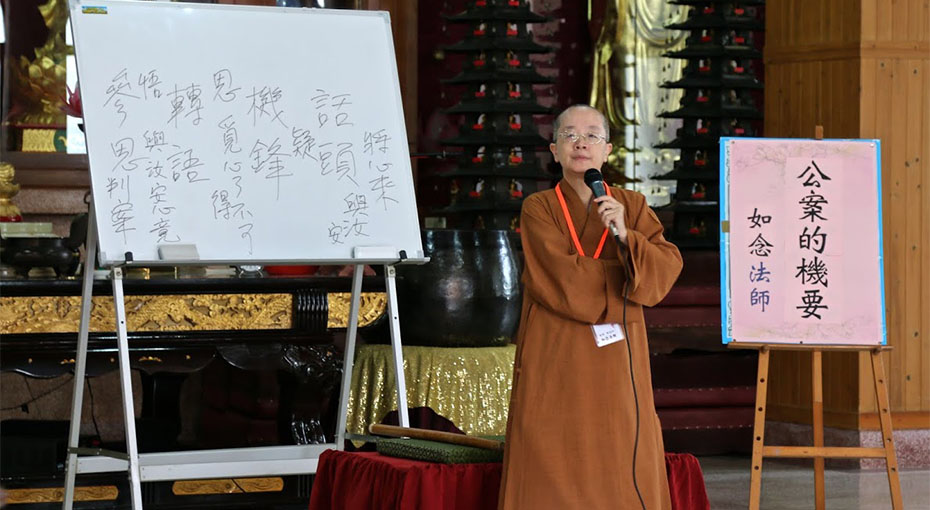 將心來與汝安
話頭
疑
機鋒
思
覓心了不可得
轉語
悟
與汝安心竟
參
思
判案
公案的機要
如念法師